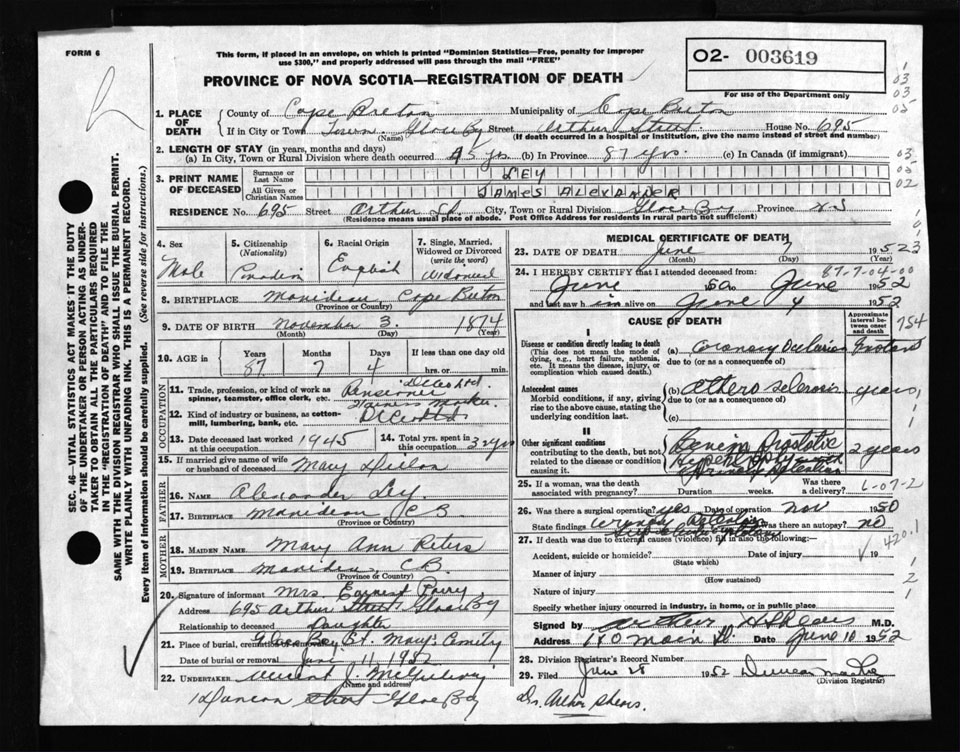 FORM 6
This form, if placed in an envelope, on which is printed "Dominion Statistics—Free, penalty for improper
use $300," and properly addressed will pass through the mail "FREE"
O2- 003619
For use of the Department only
PROVINCE OF NOVA SCOTIA—REGISTRATION OF DEATH
03
03
05
03
05
02
SEC. 46—VITAL STATISTICS ACT MAKES IT THE DUTY
OF THE UNDERTAKER OR PERSON ACTING AS UNDER-
TAKER TO OBTAIN ALL THE PARTICULARS REQUIRED
IN THE "REGISTRATION OF DEATH" AND TO FILE THE
SAME WITH THE DIVISION REGISTRAR WHO SHALL ISSUE THE BURIAL PERMIT.
WRITE PLAINLY WITH UNFADING INK. THIS IS A PERMANENT RECORD.
Every item of information should be carefully supplied. (See reverse side for instructions.)
1. PLACE OF DEATH County of Cape Breton Municipality of Cape Breton
If in City or Town Town Glace Bay Street Arthur Street House No. 695
(Name) (If death occurred in a hospital or institution, give the name instead of street and number)
2. LENGTH OF STAY (in years, months and days)
(a) In City, Town or Rural Division where death occurred yrs (b) In Province 87 yrs. (c) In Canada (if immigrant)
3. PRINT NAME OF DECEASED Surname or Last Name LEY
All Given or Christian Names JAMES ALEXANDER
RESIDENCE No. 695 Street Arthur St. City, Town or Rural Division Glace Bay Province N S
(Residence means usual place of abode. Post Office Address for residents in rural parts not sufficient)
4. Sex Male
5. Citizenship (Nationality) Canadian
6. Racial Origin English
7. Single, Married, Widowed or Divorced (write the word) Widowed
8. BIRTHPLACE Cape Breton
(Province or Country)
9. DATE OF BIRTH November 3. 1874
(Month) (Day) (Year)
10. AGE in Years 87 Months 7 Days 4 If less than one day old
hrs. or min.
OCCUPATION
11. Trade, profession, or kind of work as
spinner, teamster, office clerk, etc. Pensioner
12. Kind of industry or business, as cotton-
mill, lumbering, bank, etc.
13. Date deceased last worked at this occupation 1945
14. Total yrs. spent in this occupation
15. If married give name of wife
or husband of deceased Mary Dillon
FATHER
16. NAME Alexander Ley
17. BIRTHPLACE C B
(Province or Country)
MOTHER
18. MAIDEN NAME Mary Ann Peters
19. BIRTHPLACE C.B.
(Province or Country)
20. Signature of informant Mrs. Earnest
Address 695 Arthur Street Glace Bay
Relationship to deceased Daughter
21. Place of burial, cremation or removal Glace Bay St. Mary's
Date of burial or removal June 11, 1952
22. UNDERTAKER Vincent J. McGillivray
(Name and address)
Glace Bay
MEDICAL CERTIFICATE OF DEATH
23. DATE OF DEATH June 7 1952
(Month) (Day) (Year)
3
87-7-04-00
24. I HEREBY CERTIFY that I attended deceased from:
June to June 1952
and last saw him alive on June 4 1952
CAUSE OF DEATH
Approximate interval between onset and death
754
I
Disease or condition directly leading to death
(This does not mean the mode of dying, e.g., heart failure, asthenia, etc. It means the disease, injury, or complication which caused death.)
(a) Coronary Occlusion Instant
due to (or as a consequence of)
Antecedent causes
Morbid conditions, if any, giving rise to the above cause, stating the underlying condition last.
(b) Athero sclerosis years
due to (or as a consequence of)
(c)
II
Other significant conditions
contributing to the death, but not related to the disease or condition causing it.
Benign Prostatic
Hypertrophy with
Urinary Retention
2 years
25. If a woman, was the death associated with pregnancy? Duration weeks. Was there a delivery? 6-07-2
26. Was there a surgical operation? yes Date of operation Nov 1950
State findings Was there an autopsy? no
420.1
27. If death was due to external causes (violence) fill in also the following:—
Accident, suicide or homicide? Date of injury 19
(State which)
Manner of injury
(How sustained)
Nature of injury
Specify whether injury occurred in industry, in home, or in public place
Signed by Arthur H Shears M.D.
Address 170 Main St. Date June 10 1952
28. Division Registrar's Record Number
29. Filed June 28 1952 Duncan
(Division Registrar)
Dr. Arthur Shears.